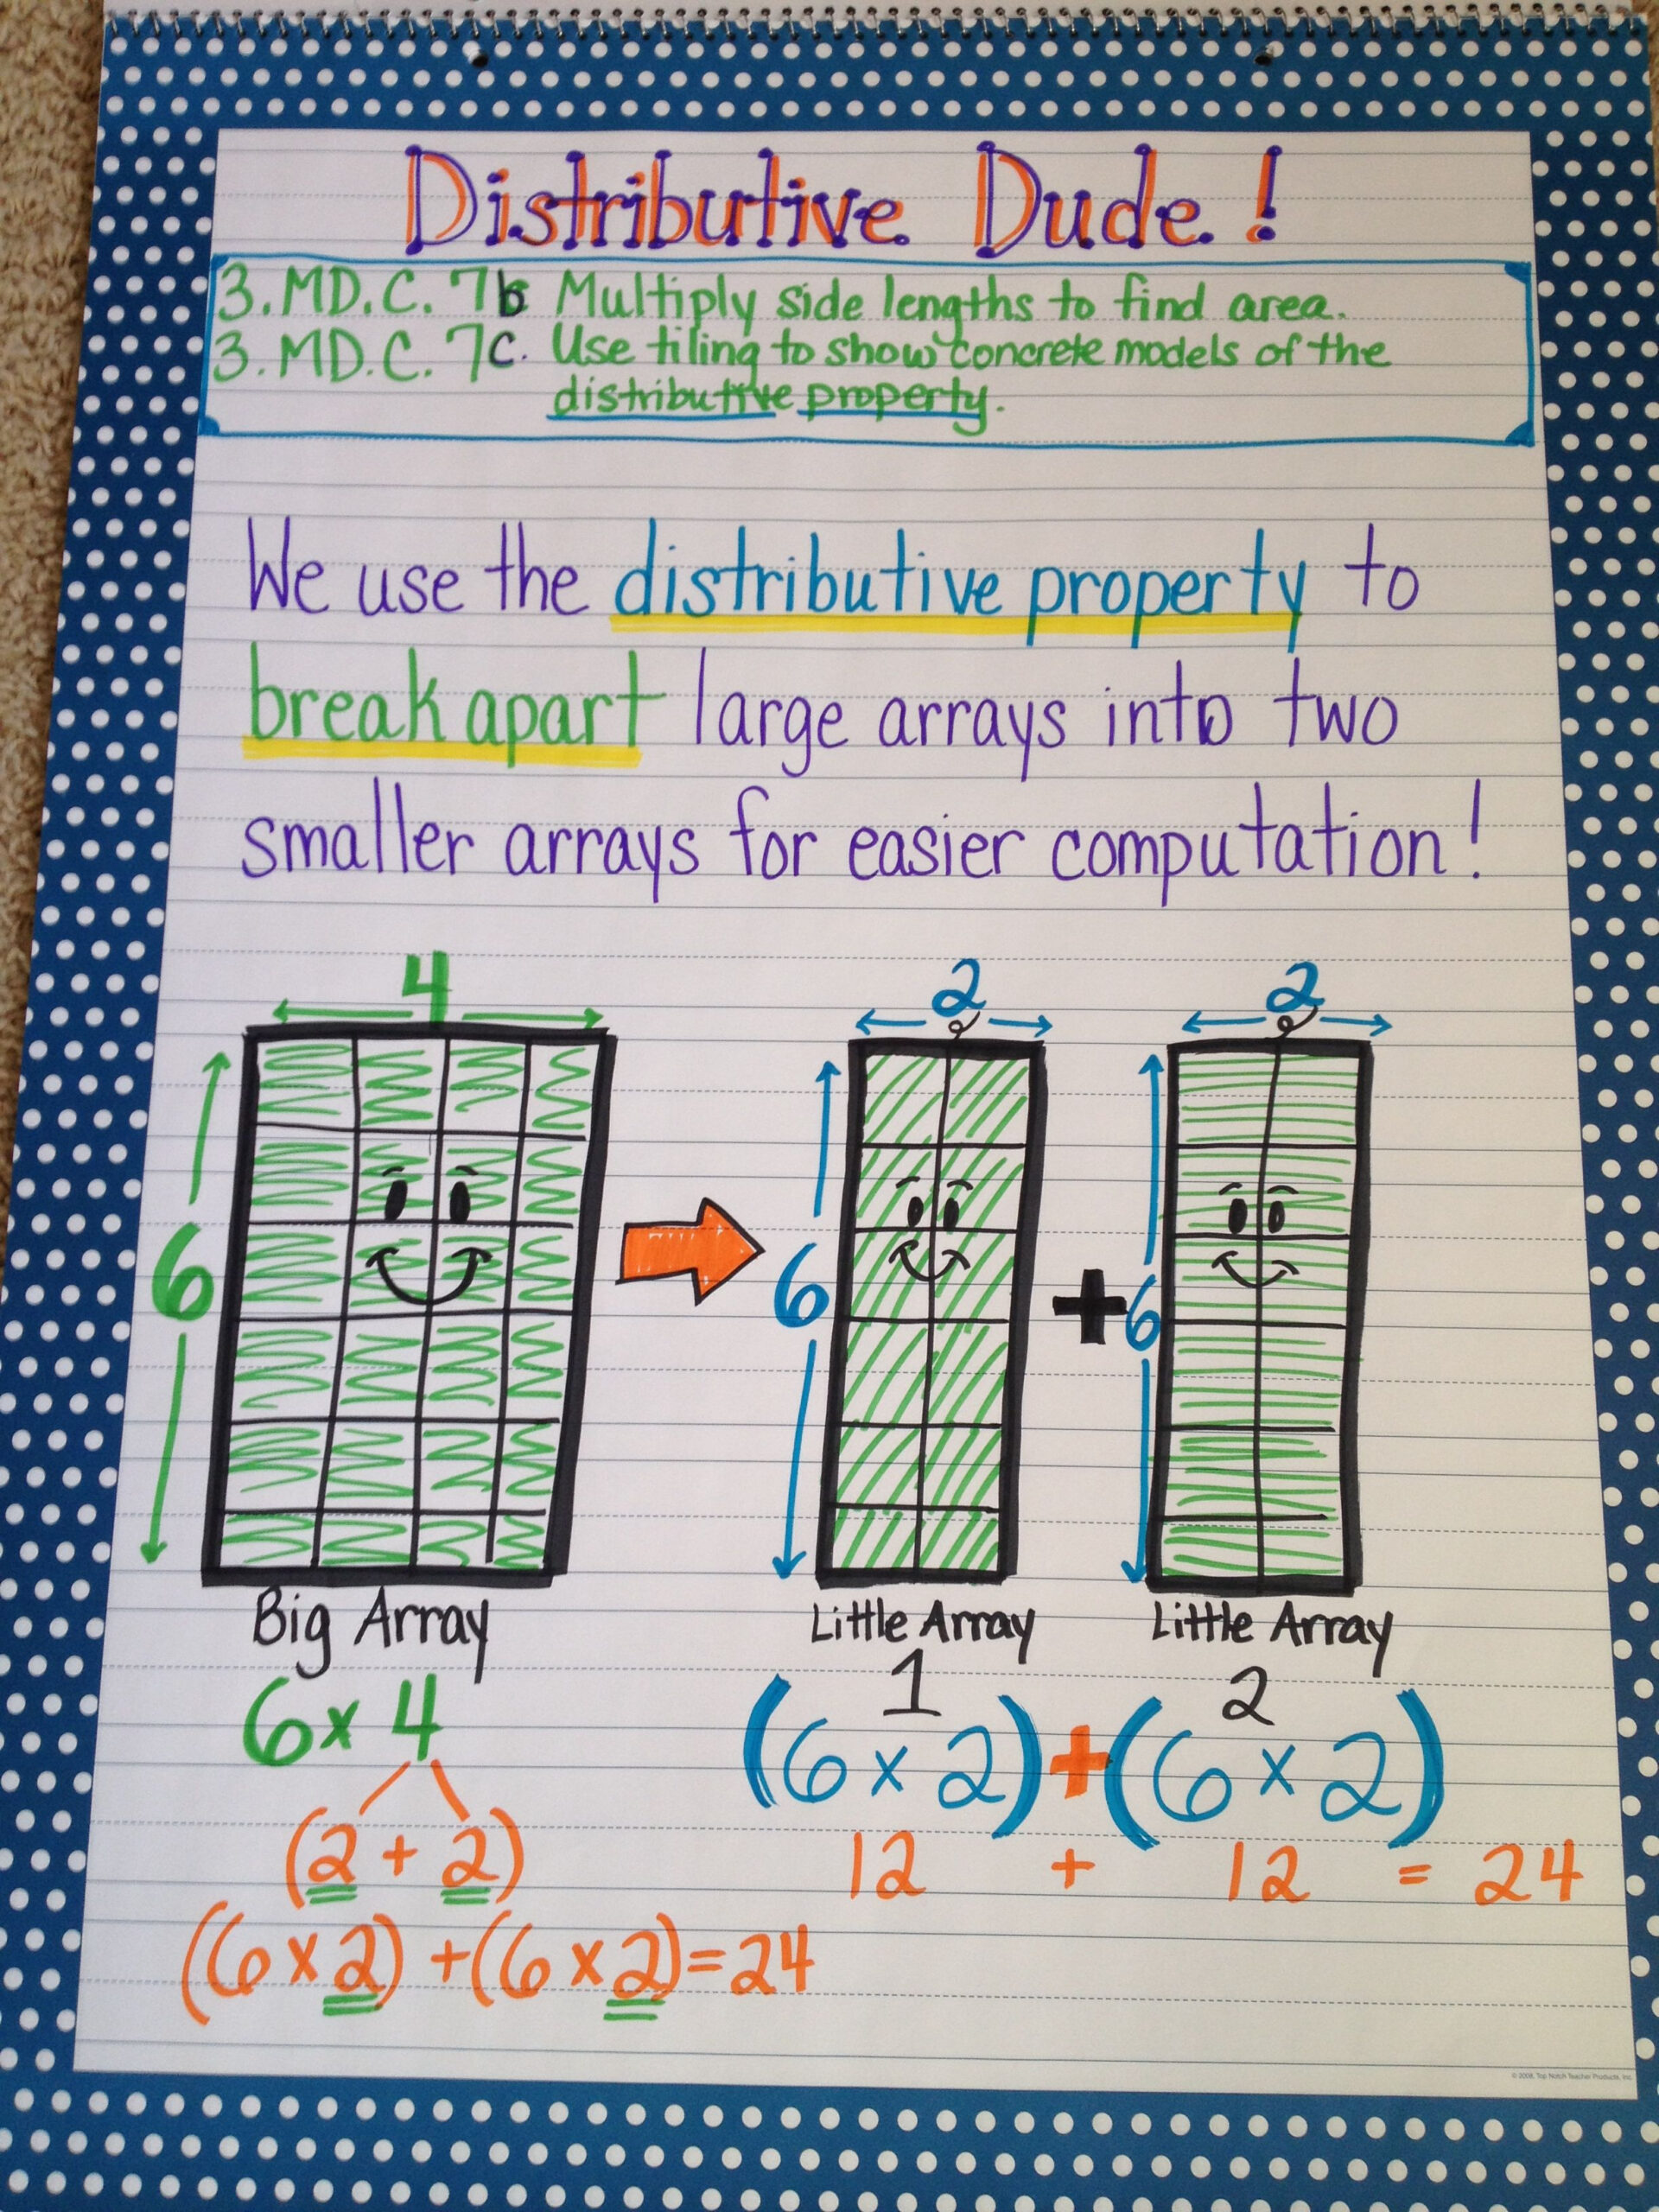 Distributive Dude!
3.MD.C.7b Multiply side lengths to find area.
3.MD.C.7c. Use tiling to show concrete models of the
distributive property.
We use the distributive property to
break apart large arrays into two
smaller arrays for easier computation!
4 2 2
6 6 + 6
Big Array Little Array Little Array
1 2
6 x 4 (6 x 2) + (6 x 2)
(2 + 2) 12 + 12 = 24
(6 x 2) + (6 x 2) = 24
© 2008, Top Notch Teacher Products, Inc.